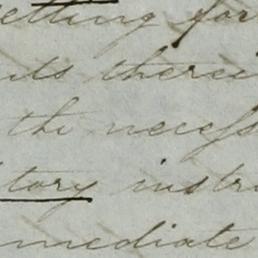 etting for
its therei
the necess
itory instru
mmediate